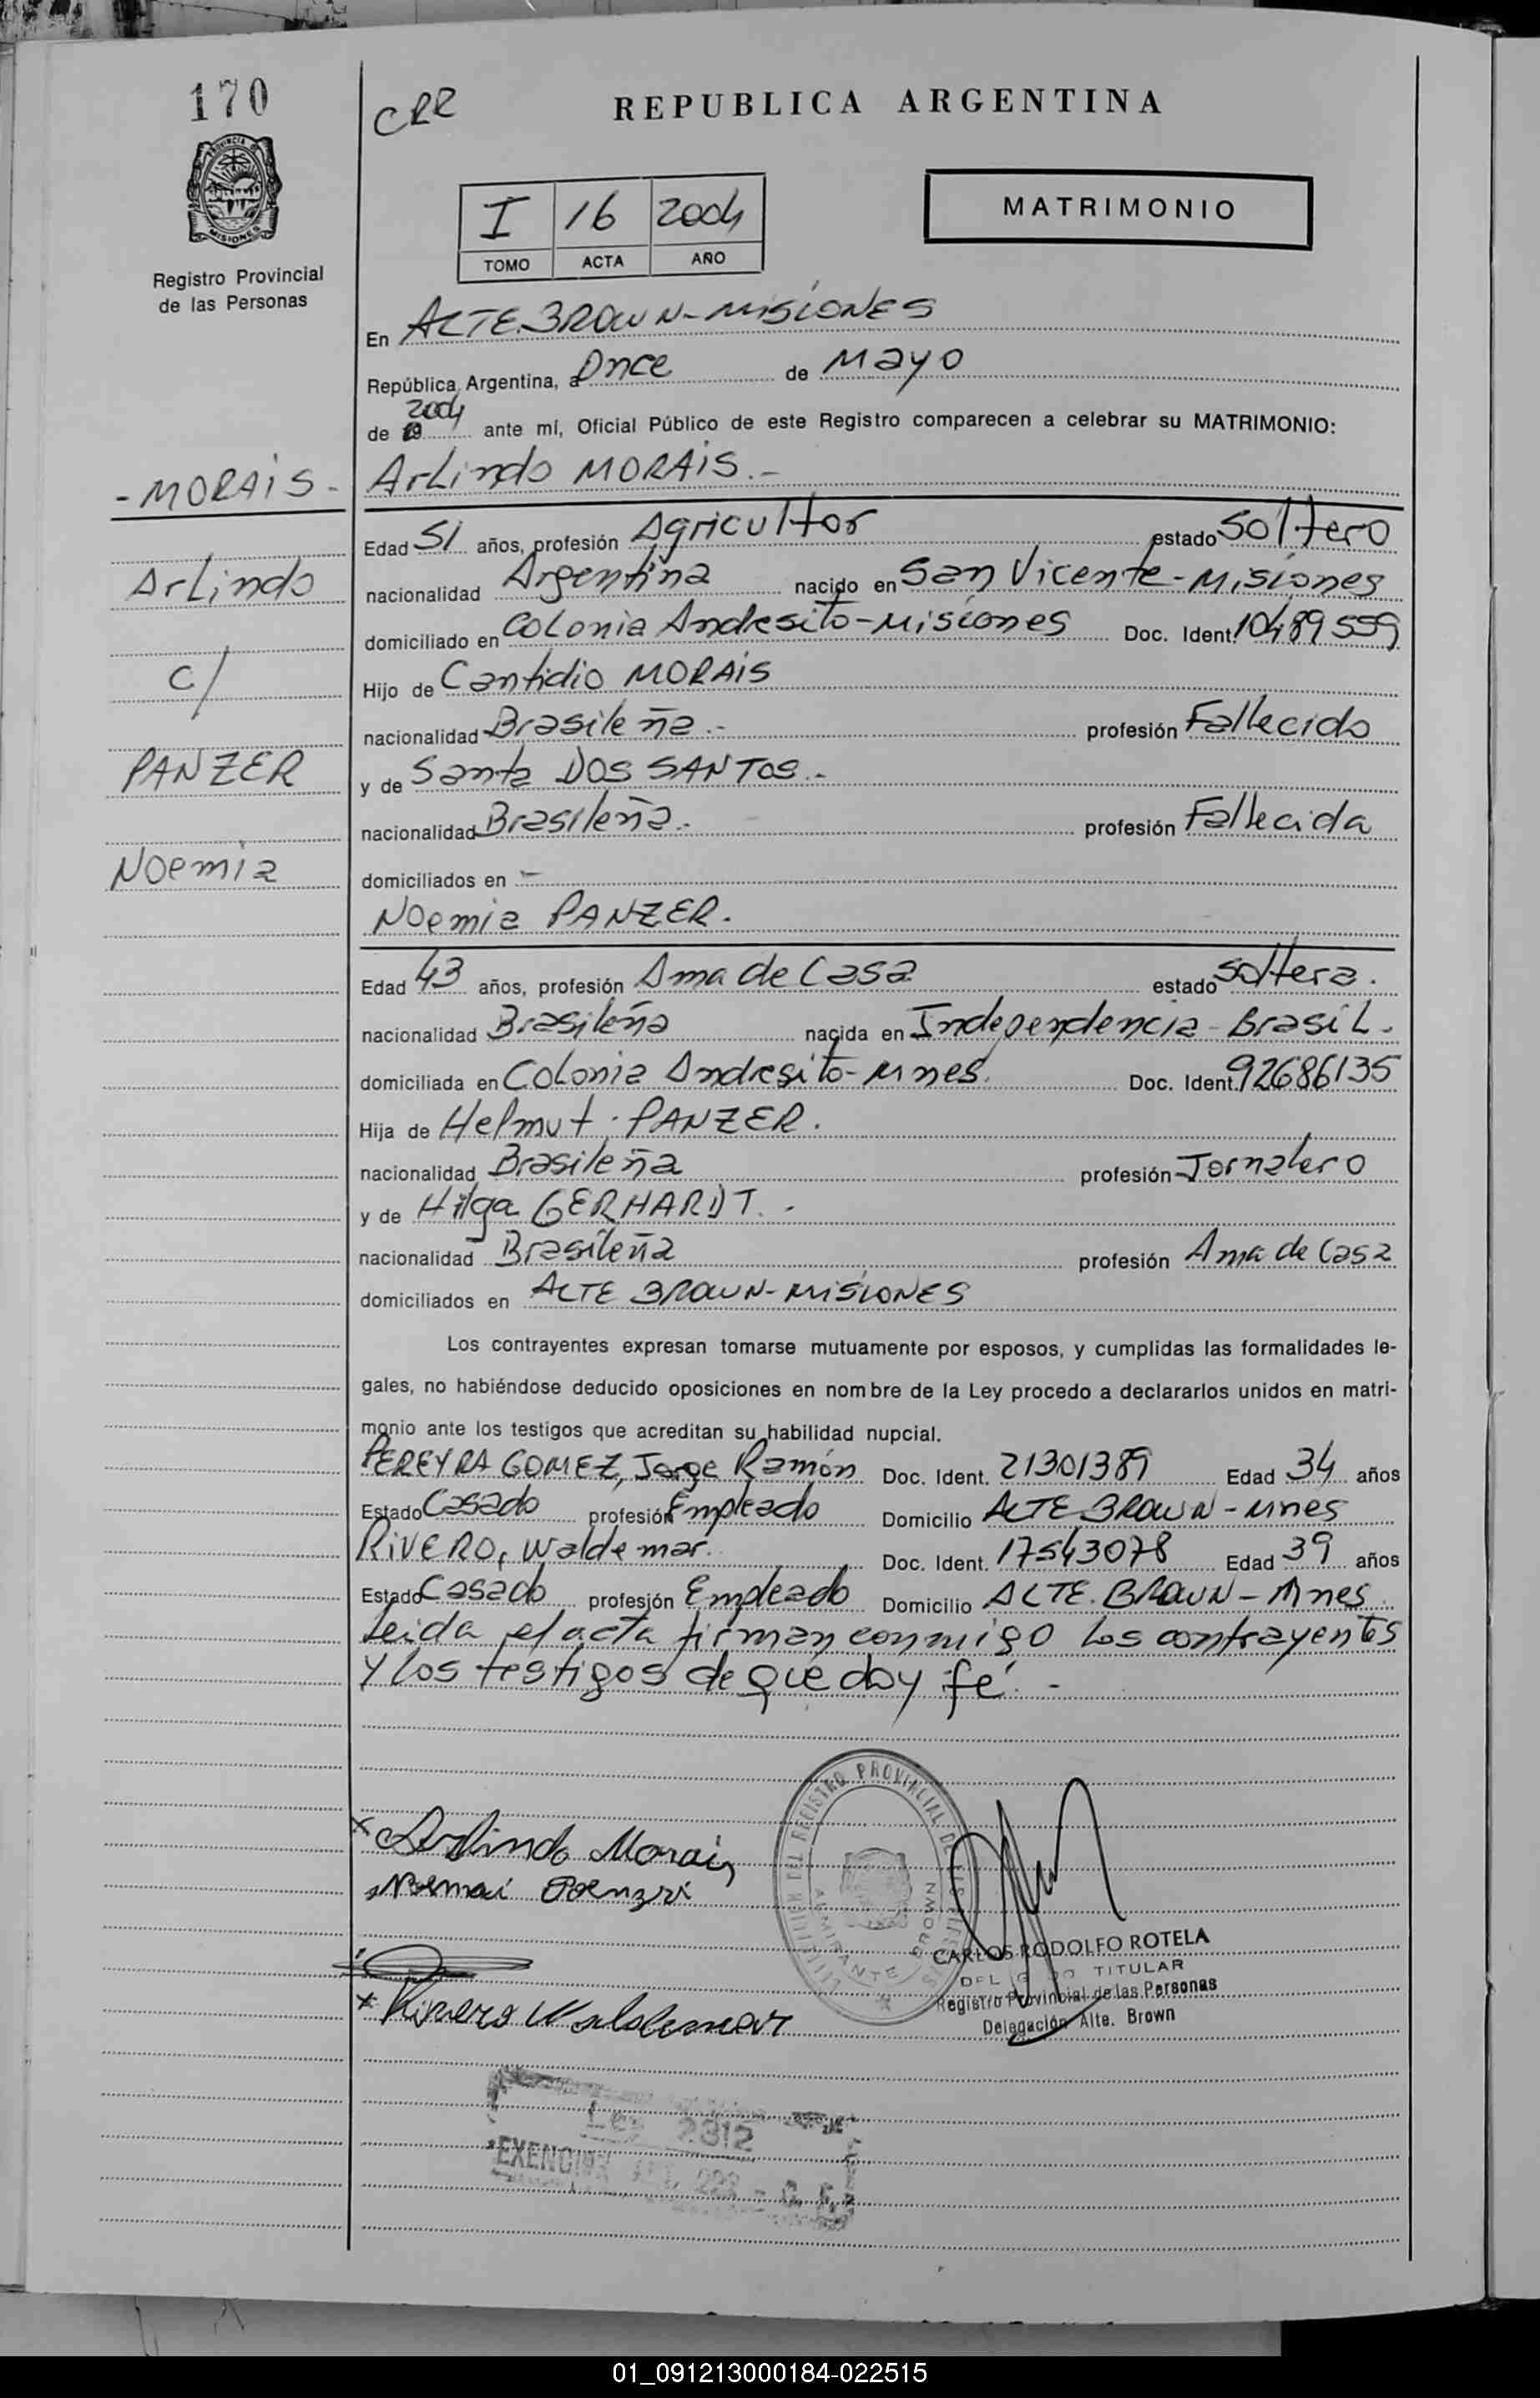 170
CRR
REPUBLICA ARGENTINA
PROVINCIA DE
MISIONES
Registro Provincial
de las Personas
I 16 2004
TOMO ACTA AÑO
MATRIMONIO
En ALTE. BROWN - MISIONES
República Argentina, a Once de Mayo
de 19 2004 ante mí, Oficial Público de este Registro comparecen a celebrar su MATRIMONIO:
- MORAIS -
Arlindo MORAIS.-
Edad 51 años, profesión Agricultor estado soltero
Arlindo
nacionalidad Argentina nacido en San Vicente - Misiones
domiciliado en Colonia Andresito - Misiones Doc. Ident. 10489559
c/
Hijo de Cantidio MORAIS
nacionalidad Brasileña.- profesión Fallecido
PANZER
y de Santa DOS SANTOS.-
nacionalidad Brasileña.- profesión Fallecida
Noemia
domiciliados en -
Noemia PANZER.
Edad 43 años, profesión Ama de Casa estado soltera.
nacionalidad Brasileña nacida en Independencia - Brasil.
domiciliada en Colonia Andresito - Mnes. Doc. Ident. 92686135
Hija de Helmut PANZER.
nacionalidad Brasileña profesión Jornalero
y de Hilga GERHARDT.-
nacionalidad Brasileña profesión Ama de Casa
domiciliados en ALTE BROWN - MISIONES
Los contrayentes expresan tomarse mutuamente por esposos, y cumplidas las formalidades le-
gales, no habiéndose deducido oposiciones en nombre de la Ley procedo a declararlos unidos en matri-
monio ante los testigos que acreditan su habilidad nupcial.
PEREYRA GOMEZ, Jorge Ramón Doc. Ident. 21301389 Edad 34 años
Estado Casado profesión Empleado Domicilio ALTE BROWN - Mnes
RIVERO, Waldemar. Doc. Ident. 17543078 Edad 39 años
Estado Casado profesión Empleado Domicilio ALTE. BROWN - Mnes
Leida el acta firman conmigo los contrayentes
y los testigos de que doy fé.-
REGISTRO PROVINCIAL DE
ALMIRANTE BROWN
x Arlindo Morais
CARLOS RODOLFO ROTELA
TITULAR
Registro Provincial de las Personas
Delegación Alte. Brown
x Rivero Waldemar
Ley 2312
EXENCION
01_091213000184-022515